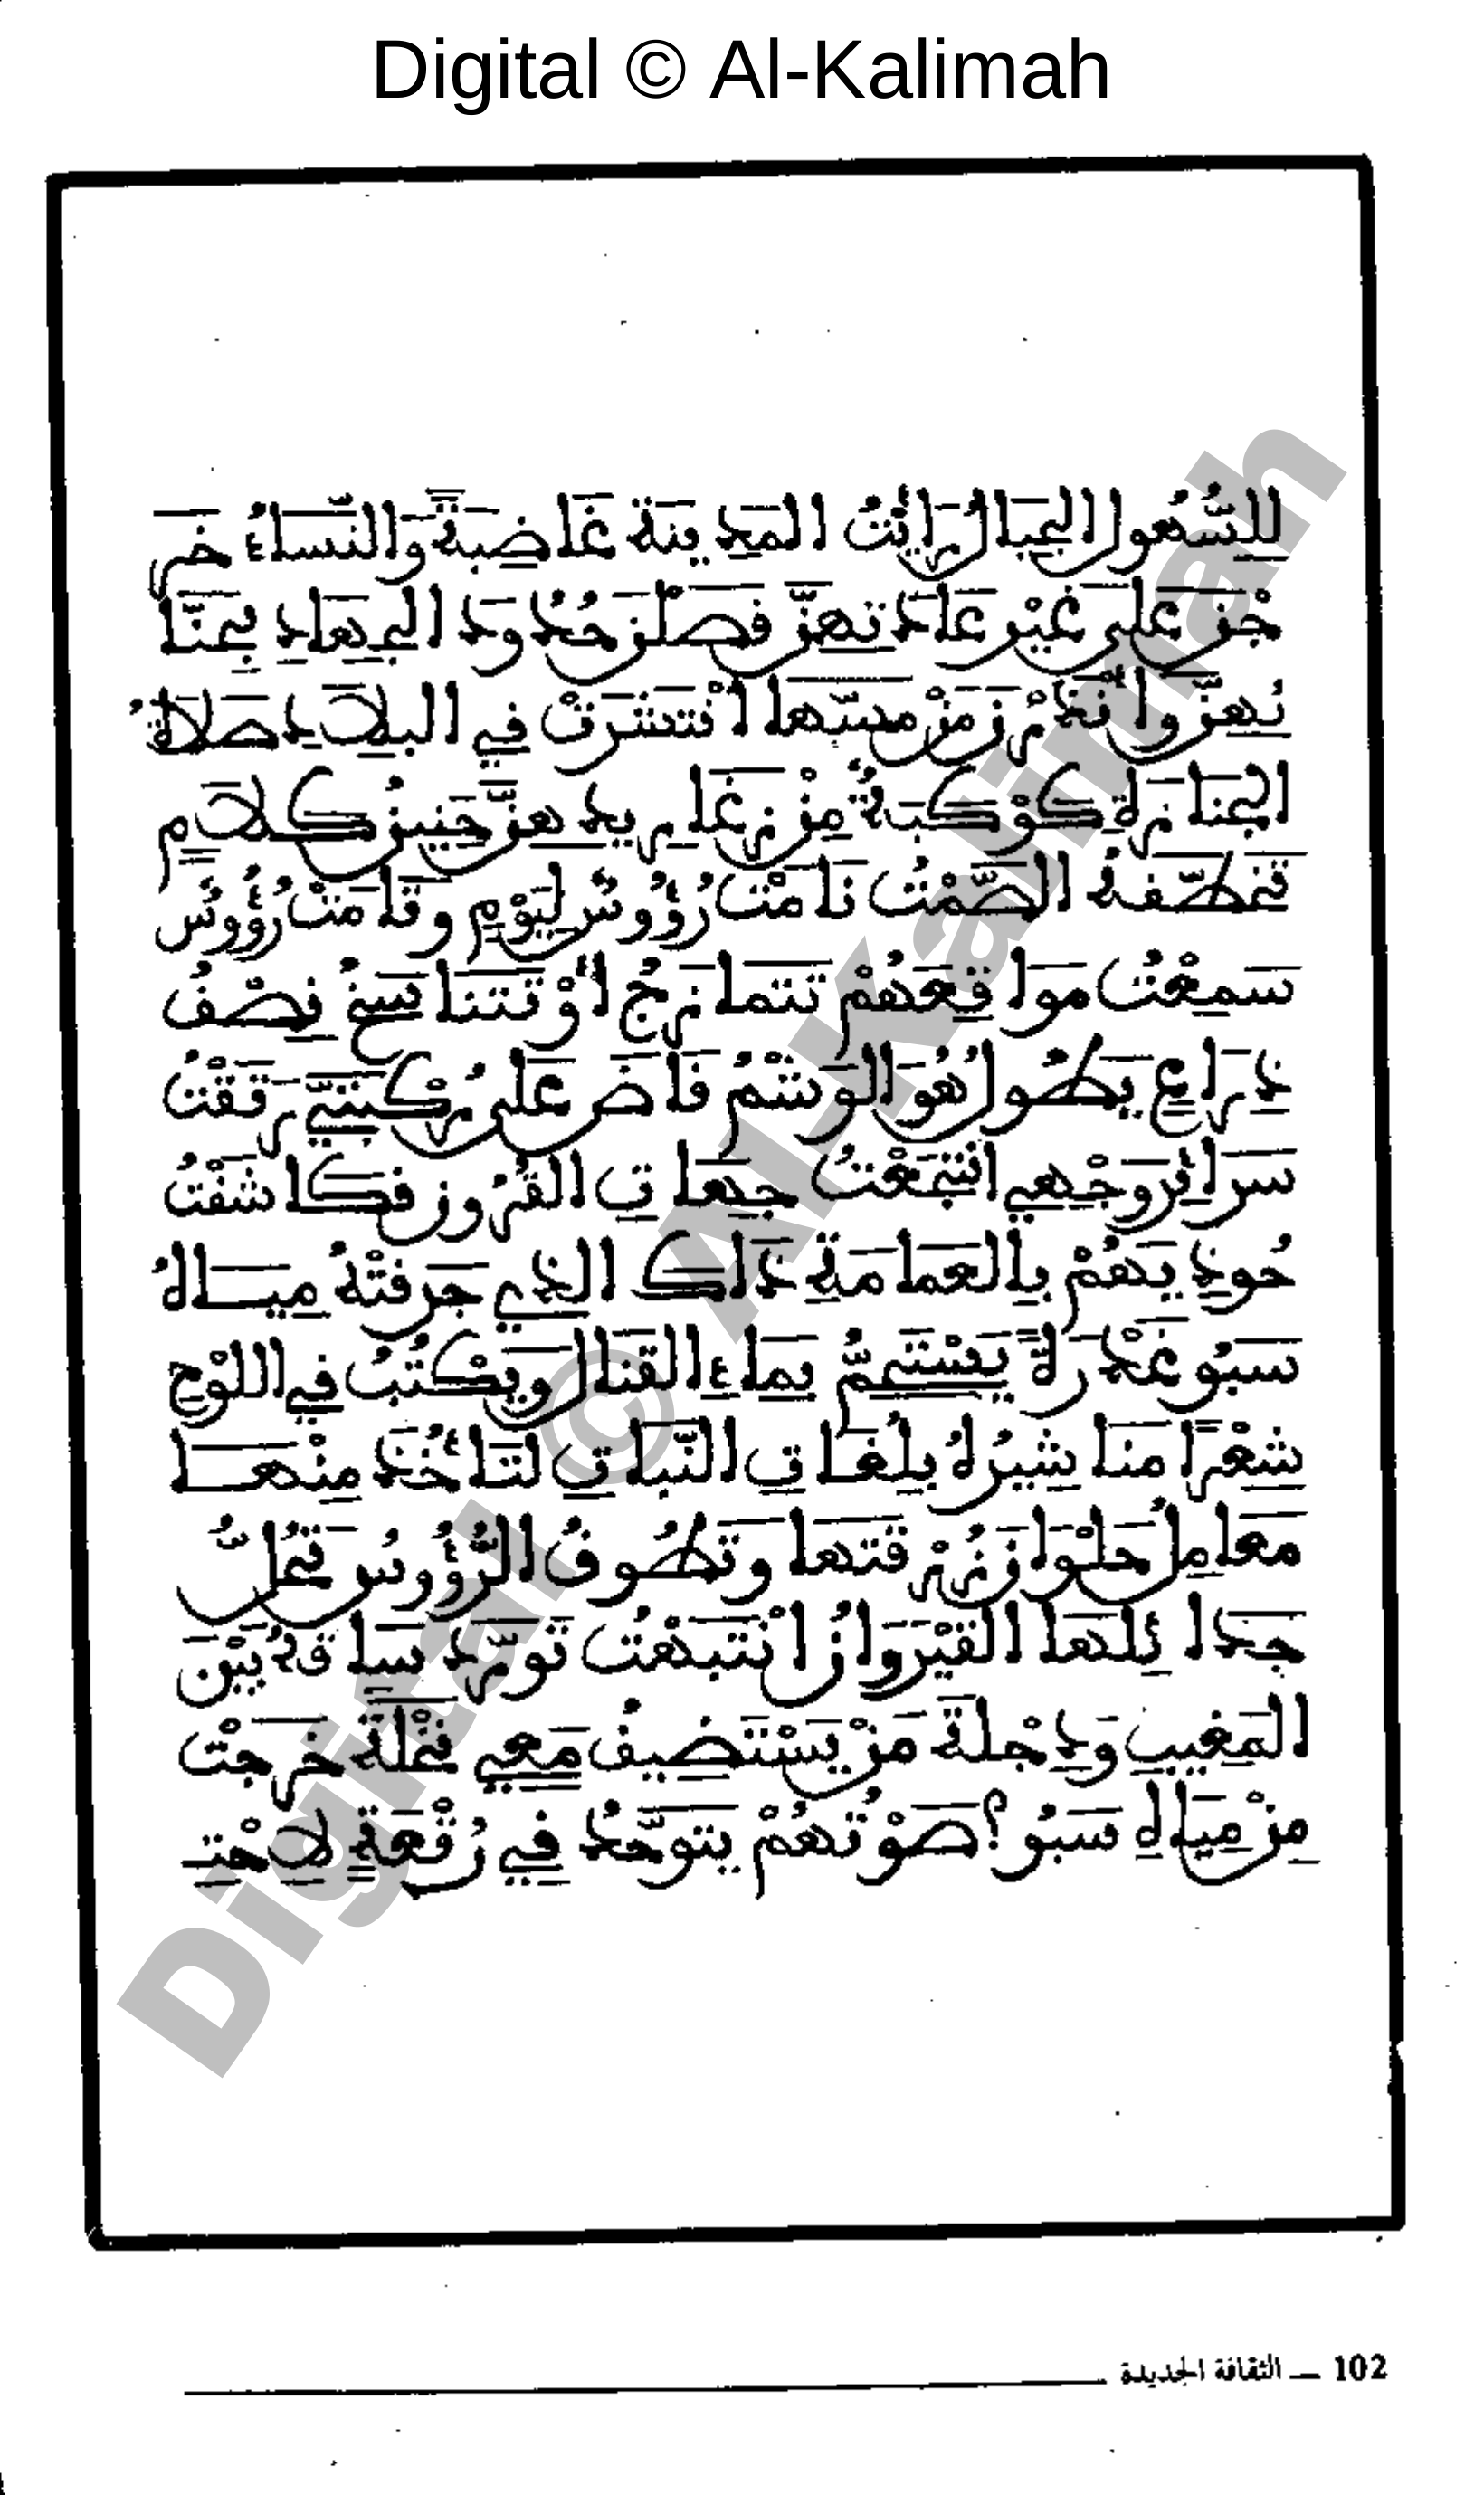 Digital © Al-Kalimah
للسُّهُولِ الجِبَالُ رَأَيْتُ المَدِينَةَ غَاضِبَةً وَالنِّسَاءُ خَرَ
جْنَ عَلَى غَيْرِ عَادَتِهِنَّ فَصَلْنَ حُدُودَ الجِهَادِ بِحِنَّا
ئِهِنَّ وإنْ مَسَّها انْتَشَرَتْ فِي البِلَادِ صَلَاةُ
الجَنَازَةِ كَوْكَبَةٌ مِنْ زَغَارِيدِهِنَّ حَنِينُ كَلَامٍ
الصَّمْتُ نَامَتْ رُؤُوسٌ لِيَوْمٍ وقَامَتْ رُؤُوسٌ
سَمِعْتُ مَواقِعَهُمْ تَتَمازَجُ أَوْ تَتَنَاسَخُ نِصْفُ
ذِرَاعٍ يَطُولُ هُوَ الوَشْمُ فَاضَ عَلَى رُكْبَتِي رَقَقْتُ
سَرَائِرَ وَجْهِي جِهَاتِ القُرُونِ فكَاشَفْتُ
خُوذِيَهُمْ بِالعَمامَةِ ذَلِكَ الذِي جَرَفَتْهُ مِيَاهُ
سَبُو غَدْرَةً يَسْتَحِمُّ بِمَاءِ القَنَالِ ويَكْتُبُ فِي اللَّوْحِ
شِعْرًا مَنَاشِيرُهُ بِلُغَاتِ النَّبَاتِ لِتَأْخُذَ مِنْهَا
مَعَامِلُ حُلْوَانَ زُرْقَتَها وتَطُوفُ الرُّؤُوسُ تَحُلُّ
جَدَائِلَهَا القَيْرَوَانُ انْتَبَهْتُ تَوَحَّدَ سَاقَهُ بَيْنَ
المَغِيبِ وَدِجْلَةَ مَنْ يَسْتَضِيفُ مَعِي نَخْلَةً خَرَجَتْ
مِنْ مِيَاهِ سَبُو؟ صَوْتُهُمْ يَتَوَحَّدُ فِي رُقْعَةٍ لِاحْتِـ
102 — الثقافة الجديدة
Digital © Al-Kalimah